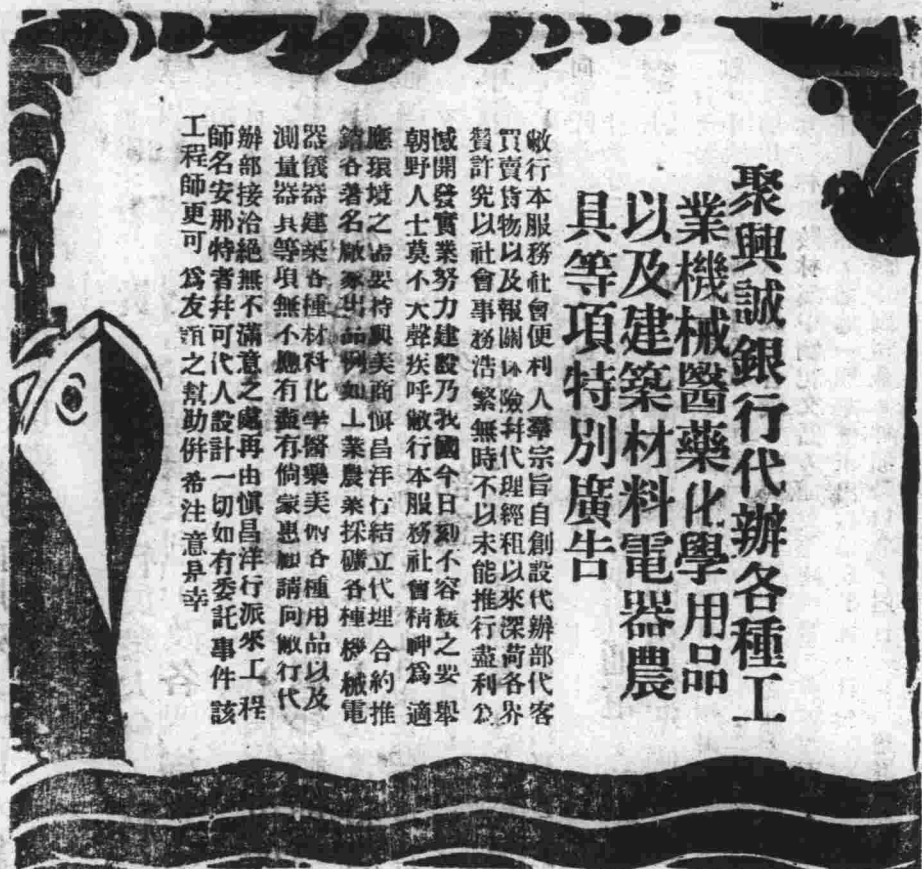 聚興誠銀行代辦各種工
業機械醫藥化學用品
以及建築材料電器農
具等項特別廣告
敝行本服務社會便利人羣宗旨自創設代辦部代客
買賣貨物以及報關保險幷代理經租以來深荷各界
贊許究以社會事務浩繁無時不以未能推行盡利為
憾開發實業努力建設乃我國今日刻不容緩之要舉
朝野人士莫不大聲疾呼敝行本服務社會精神爲適
應環境之需要特與美商愼昌洋行結立代理合約推
銷各著名廠家出品例如工業農業採礦各種機械電
器儀器建築各種材料化學醫藥美術各種用品以及
測量器具等項無不應有盡有倘蒙惠顧請向敝行代
辦部接洽絕無不滿意之處再由愼昌洋行派來工程
師名安那特者幷可代人設計一切如有委託事件該
工程師更可爲友誼之幫助併希注意是幸